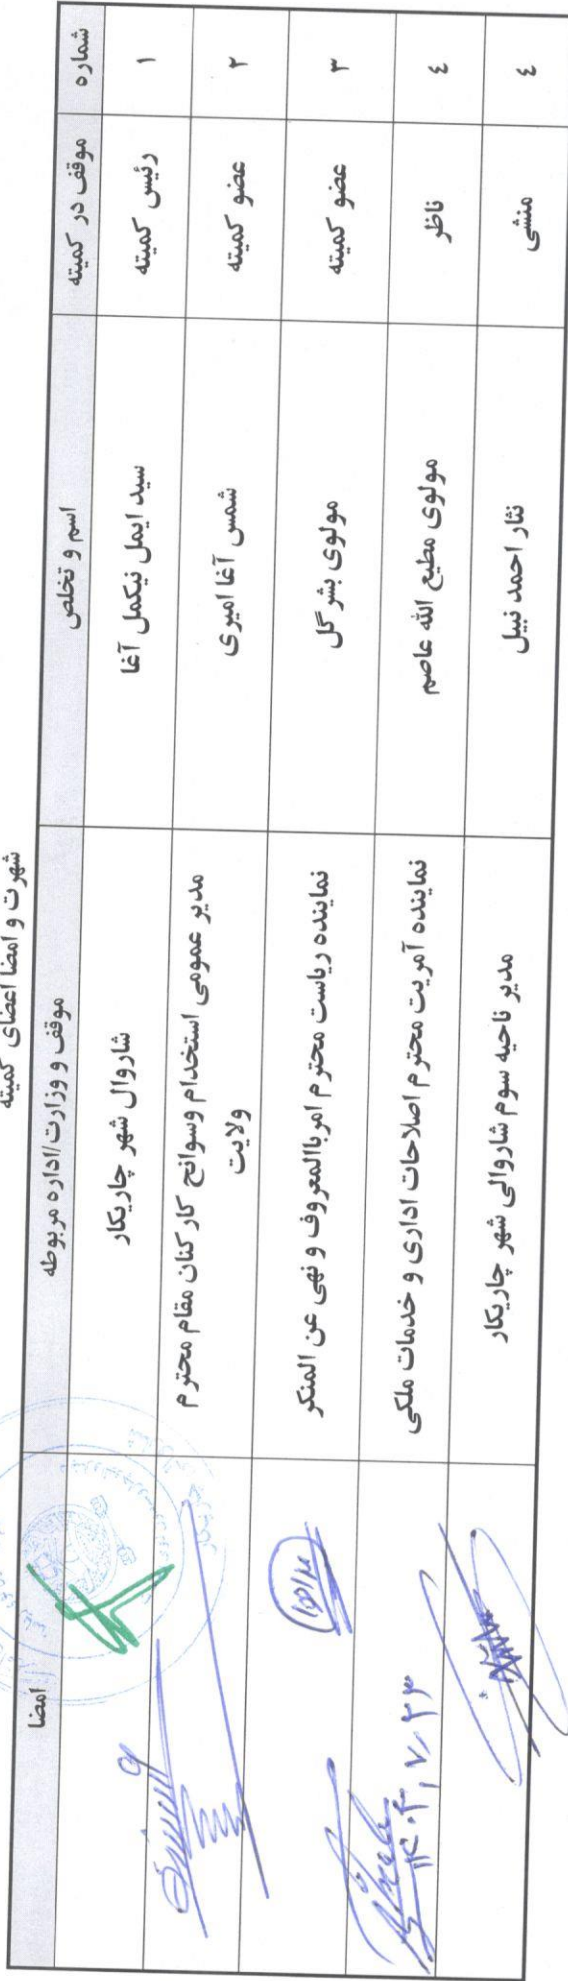 شهرت و امضا اعضای کمیته
شماره موقف در کمیته اسم و تخلص موقف و وزارت/اداره مربوطه امضا
۱ رئیس کمیته سید ایمل نیکمل آغا شاروال شهر چاریکار
۲ عضو کمیته شمس آغا امیری مدیر عمومی استخدام وسوانح کارکنان مقام محترم
ولایت
۳ عضو کمیته مولوی بشر گل نماینده ریاست محترم امرباالمعروف و نهی عن المنکر
٤ ناظر مولوی مطیع الله عاصم نماینده آمریت محترم اصلاحات اداری و خدمات ملکی
٤ منشی نثار احمد نبیل مدیر ناحیه سوم شاروالی شهر چاریکار